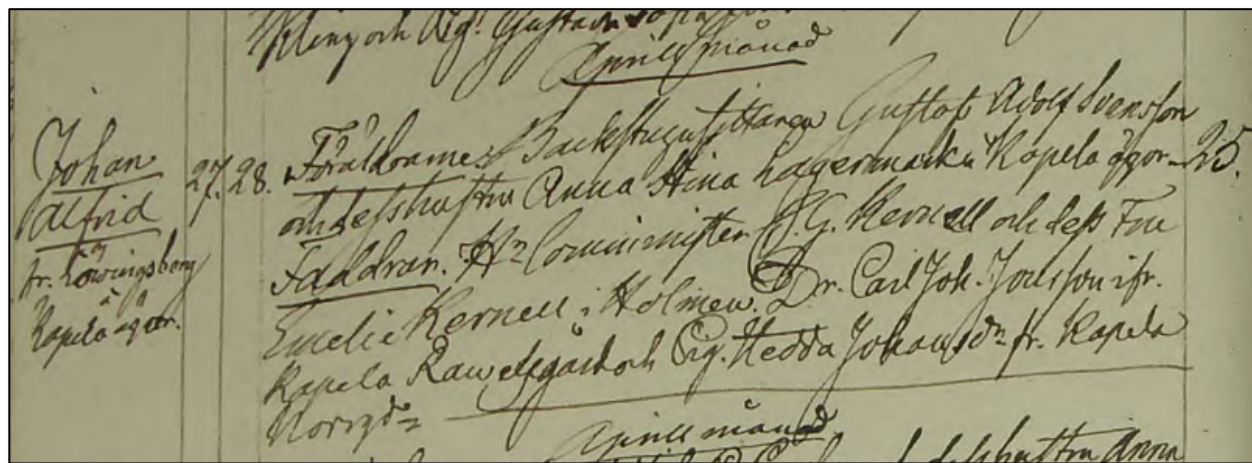 Kling och Pig. Gustava
Aprill månad
Johan
Alfrid
fr. Löwingsborg
å
Kapela ägor.
27. 28. Föräldrarne: Backstugusittaren Gustaf Adolf Svensson
och dess hustru Anna Stina Lagermark i Kapela ägor — 25.
Faddran. Hr Comminister C.G. Kernell och dess Fru
Emelie Kernell i Holmen. Dr. Carl Joh. Jonsson ifr.
Kapela Rawelsgård och Pig. Hedda Johansdr fr. Kapela
Norrgd
Aprill månad
dess hustru Anna